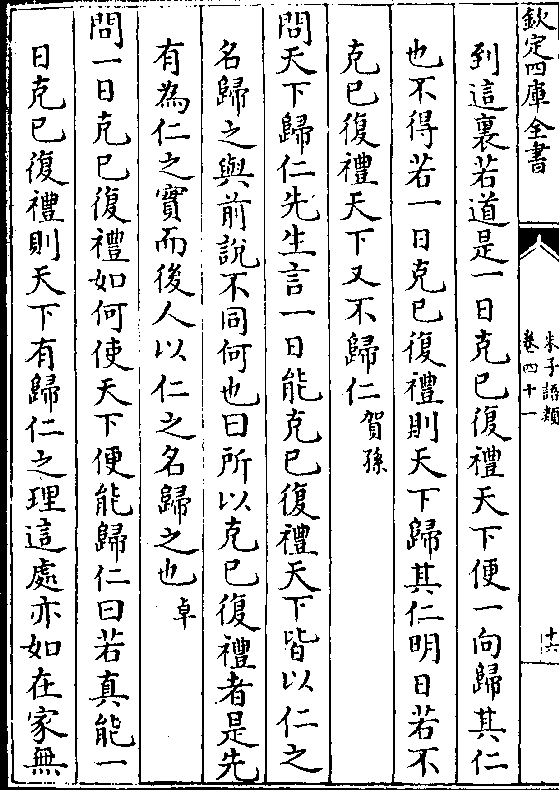 欽定四庫全書
朱子語類
卷四十一
十六
到這裏若道是一日克已復禮天下便一向歸其仁
也不得若一日克已復禮則天下歸其仁明日若不
克已復禮天下又不歸仁賀孫
問天下歸仁先生言一日能克已復禮天下皆以仁之
名歸之與前說不同何也曰所以克已復禮者是先
有為仁之實而後人以仁之名歸之也卓
問一日克已復禮如何使天下便能歸仁曰若真能一
日克已復禮則天下有歸仁之理這處亦如在家無